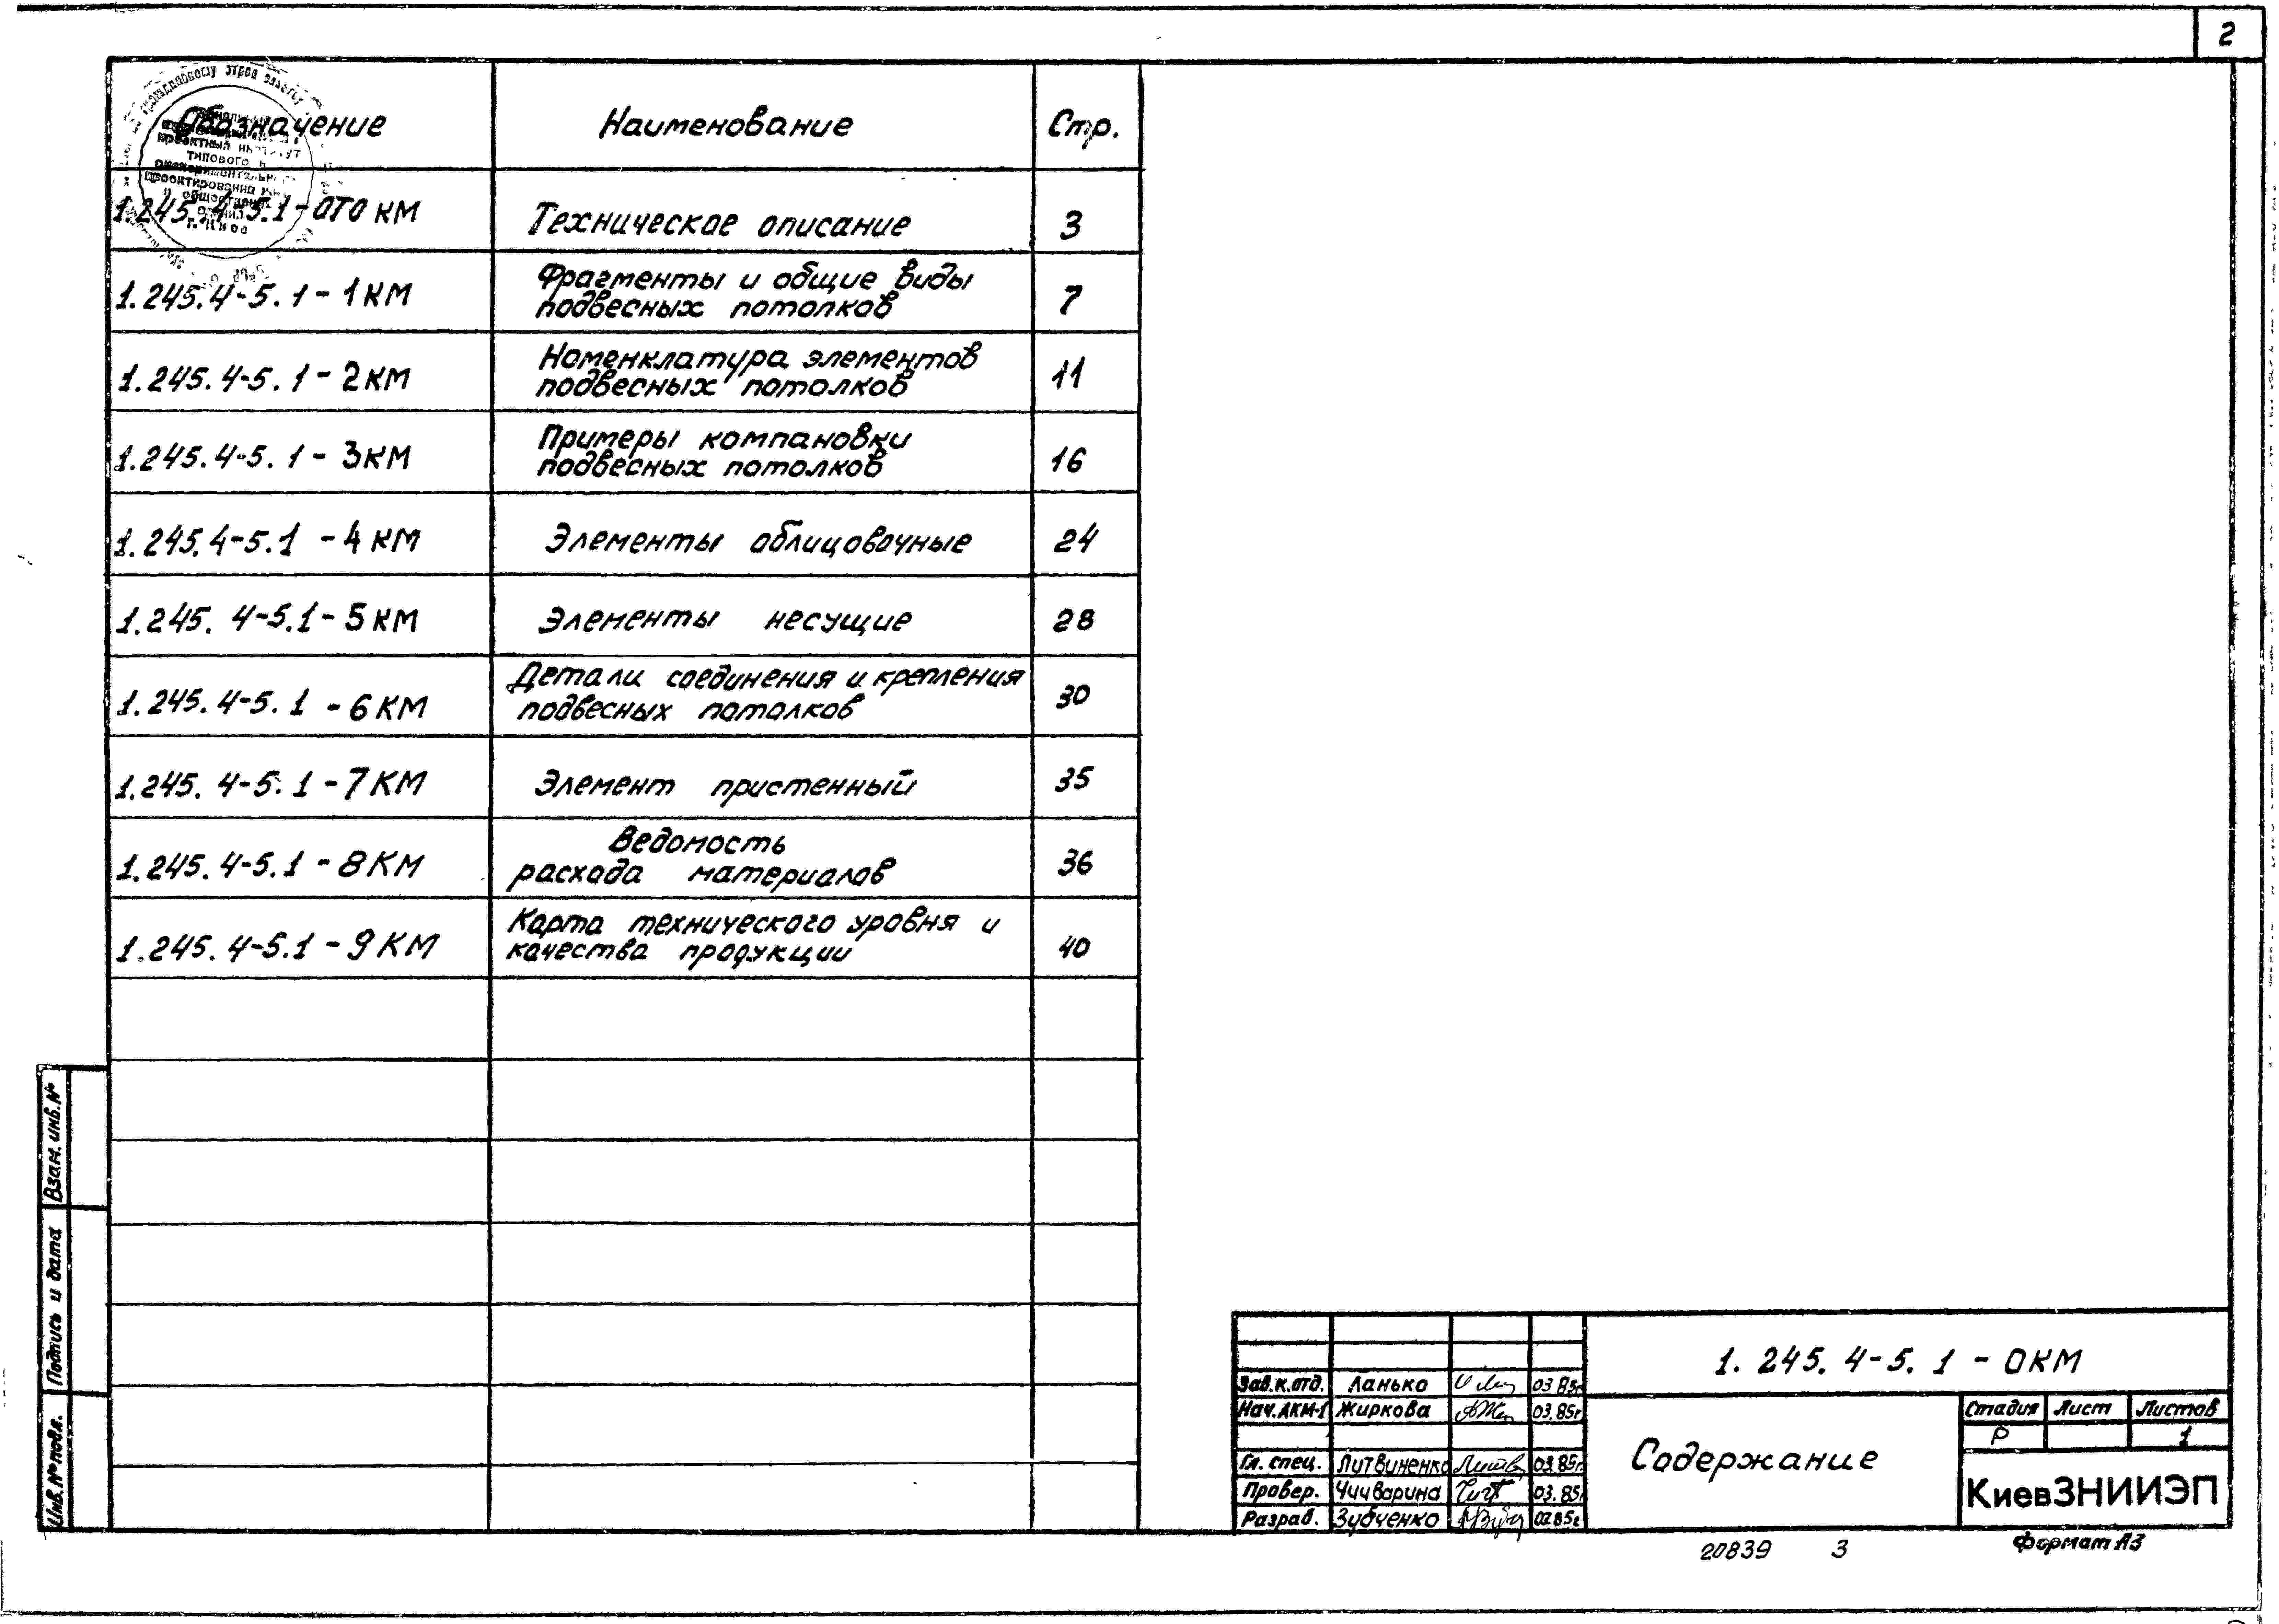 2
Обозначение Наименование Стр.
проектный институт
типового и
г. Киев
1.245.4-5.1-0ТО КМ Техническое описание 3
1.245.4-5.1-1КМ Фрагменты и общие виды
подвесных потолков 7
1.245.4-5.1-2КМ Номенклатура элементов
подвесных потолков 11
1.245.4-5.1-3КМ Примеры компановки
подвесных потолков 16
1.245.4-5.1-4КМ Элементы облицовочные 24
1.245.4-5.1-5КМ Элементы несущие 28
1.245.4-5.1-6КМ Детали соединения и крепления
подвесных потолков 30
1.245.4-5.1-7КМ Элемент пристенный 35
1.245.4-5.1-8КМ Ведомость
расхода материалов 36
1.245.4-5.1-9КМ Карта технического уровня и
качества продукции 40
Взам. инв. №
Подпись и дата
Инв. № подл.
1.245.4-5.1-0КМ
Зав.к.отд. Ланько 03.85г
Нач.АКМ-1 Жиркова 03.85г
Гл. спец. Литвиненко 03.85г
Провер. Чичварина 03.85г
Разраб. Зубченко 02.85г
Содержание
Стадия Лист Листов
Р 1
КиевЗНИИЭП
20839 3 Формат А3